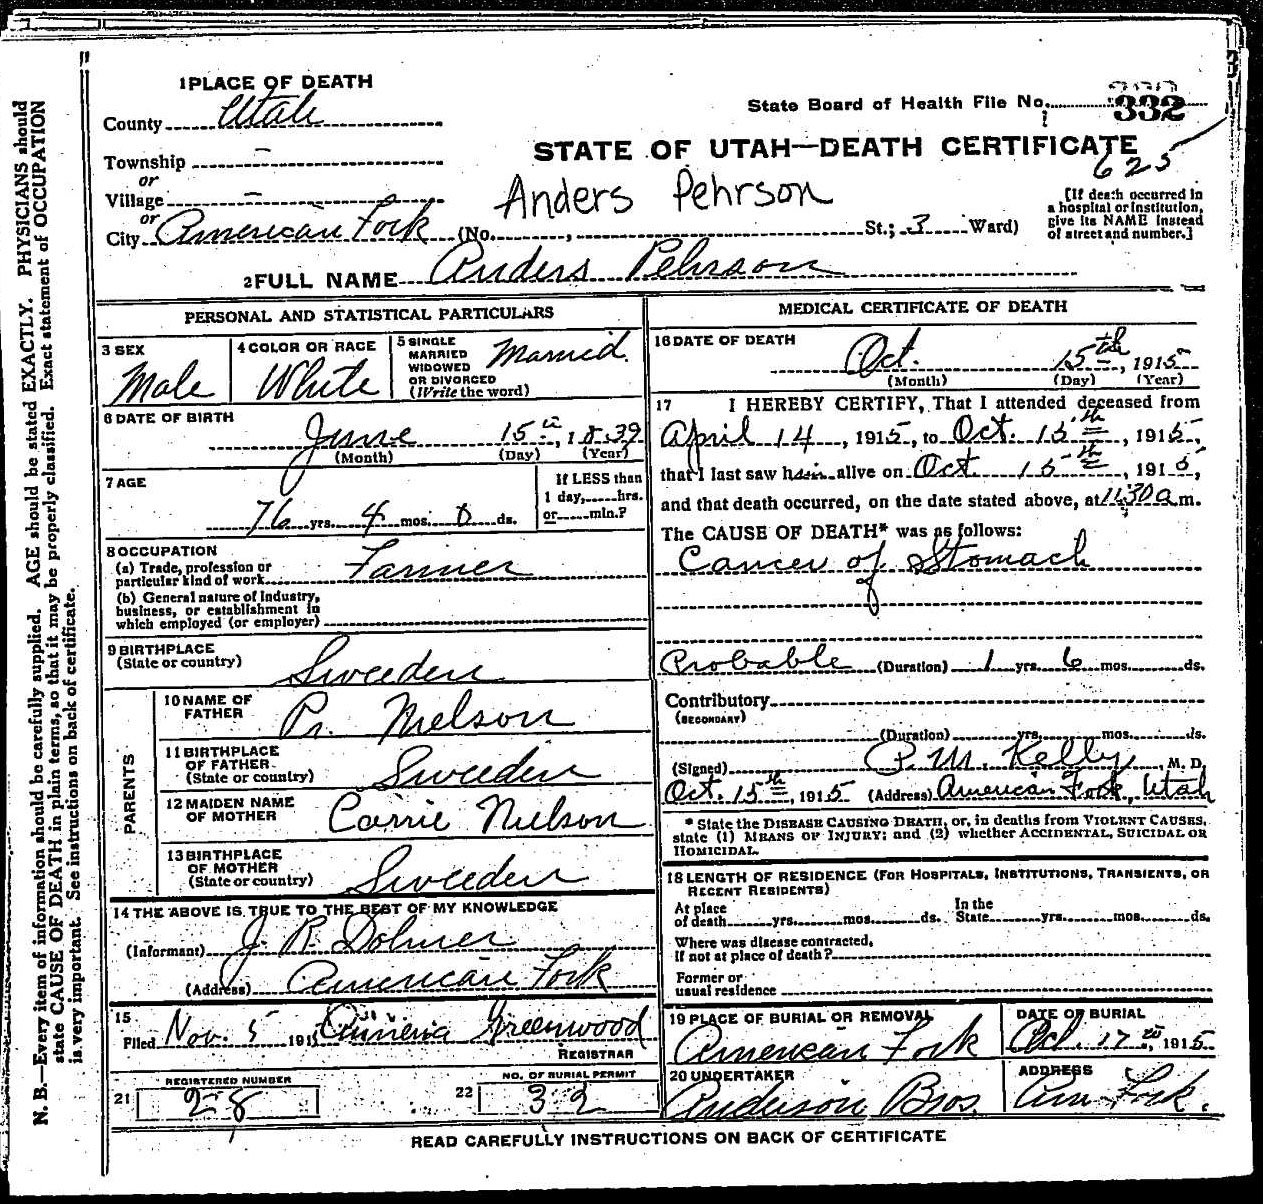 1 PLACE OF DEATH
County Utah
Township –
or
Village –
or
City American Fork (No. , St.; 3 Ward)
State Board of Health File No. 332
STATE OF UTAH—DEATH CERTIFICATE
625
Anders Pehrson
[If death occurred in
a hospital or institution,
give its NAME instead
of street and number.]
2 FULL NAME Anders Pehrson
PERSONAL AND STATISTICAL PARTICULARS
3 SEX
Male
4 COLOR OR RACE
White
5 SINGLE
MARRIED
WIDOWED
OR DIVORCED
(Write the word)
Married.
6 DATE OF BIRTH
June 15th, 1839
(Month) (Day) (Year)
7 AGE
76 yrs. 4 mos. 0 ds.
If LESS than
1 day, hrs.
or min.?
8 OCCUPATION
(a) Trade, profession or
particular kind of work Farmer
(b) General nature of Industry,
business, or establishment in
which employed (or employer)
9 BIRTHPLACE
(State or country)
Sweeden
PARENTS
10 NAME OF
FATHER
Pr. Nielson
11 BIRTHPLACE
OF FATHER
(State or country)
Sweeden
12 MAIDEN NAME
OF MOTHER
Carrie Nielson
13 BIRTHPLACE
OF MOTHER
(State or country)
Sweeden
14 THE ABOVE IS TRUE TO THE BEST OF MY KNOWLEDGE
(Informant) J. R.
(Address) American Fork
15
Filed Nov. 5 191 Greenwood
REGISTRAR
REGISTERED NUMBER
21 28
NO. OF BURIAL PERMIT
22 32
MEDICAL CERTIFICATE OF DEATH
16 DATE OF DEATH
Oct. 15th, 1915
(Month) (Day) (Year)
17 I HEREBY CERTIFY, That I attended deceased from
April 14, 1915, to Oct. 15th, 1915,
that I last saw him alive on Oct 15th, 1915,
and that death occurred, on the date stated above, at 11:30 a.m.
The CAUSE OF DEATH* was as follows:
Cancer of Stomach
Probable (Duration) 1 yrs. 6 mos. ds.
Contributory
(SECONDARY)
(Duration) yrs. mos. ds.
(Signed) P. M. Kelly, M. D.
Oct. 15th, 1915 (Address) American Fork, Utah
* State the DISEASE CAUSING DEATH, or, in deaths from VIOLENT CAUSES,
state (1) MEANS OF INJURY; and (2) whether ACCIDENTAL, SUICIDAL OR
HOMICIDAL.
18 LENGTH OF RESIDENCE (FOR HOSPITALS, INSTITUTIONS, TRANSIENTS, OR
RECENT RESIDENTS)
At place
of death yrs. mos. ds. In the State yrs. mos. ds.
Where was disease contracted,
if not at place of death?
Former or
usual residence
19 PLACE OF BURIAL OR REMOVAL
American Fork
DATE OF BURIAL
Oct. 17th, 1915
20 UNDERTAKER
Anderson Bros.
ADDRESS
Am. Fork.
READ CAREFULLY INSTRUCTIONS ON BACK OF CERTIFICATE
N. B.—Every item of information should be carefully supplied. AGE should be stated EXACTLY. PHYSICIANS should
state CAUSE OF DEATH in plain terms, so that it may be properly classified. Exact statement of OCCUPATION
is very important. See instructions on back of certificate.